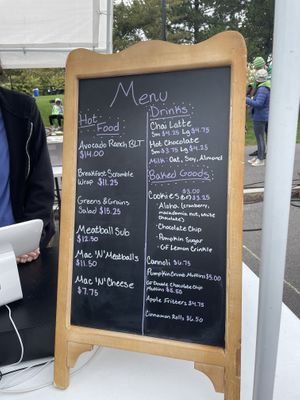 Menu
Hot
Food
Avocado Ranch BLT
$14.00
Breakfast Scramble
Wrap $11.25
Greens & Grains
Salad $15.25
Meatball Sub
$12.50
Mac 'N' Meatballs
$11.50
Mac 'N' Cheese
$7.75
Drinks
Chai Latte
Sm $4.25 Lg $4.75
Hot Chocolate
Sm $3.75 Lg $4.25
Milk: Oat, Soy, Almond
Baked Goods
Cookies $3.00
• Aloha (cranberry,
macadamia nut, white
chocolate)
• Chocolate Chip
• Pumpkin Sugar
• GF Lemon Crinkle
Cannoli $6.75
Pumpkin Crumb Muffins $5.00
GF Double Chocolate Chip
Muffins $5.50
Apple Fritters $4.75
Cinnamon Rolls $6.50